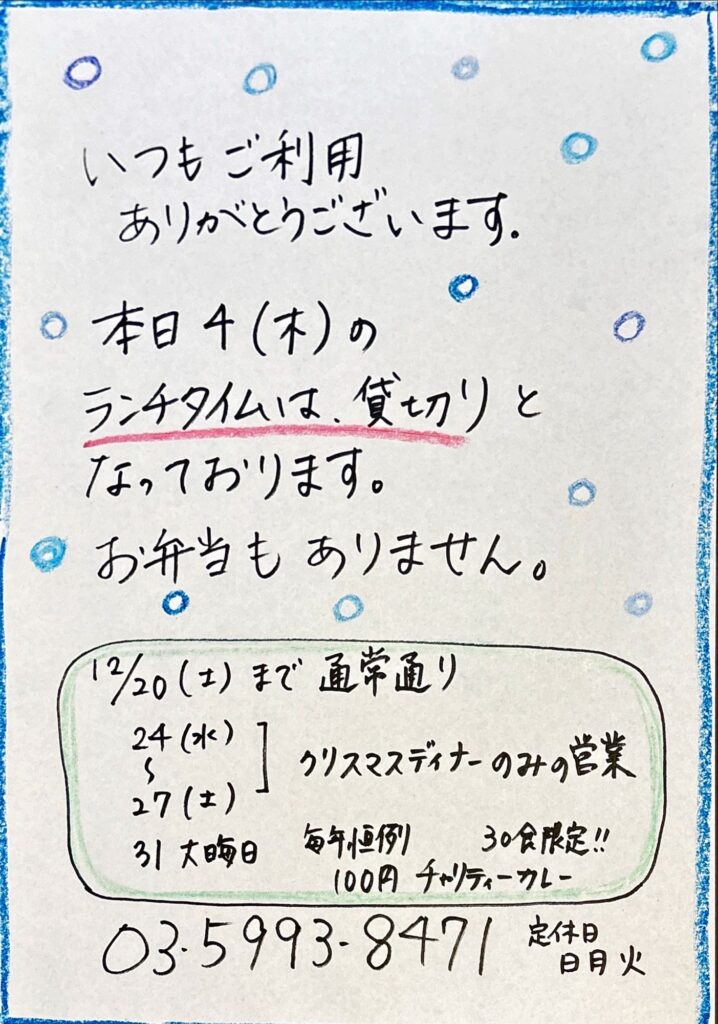 いつもご利用
ありがとうございます.
本日4(木)の
ランチタイムは、貸切りと
なっております。
お弁当もありません。
12/20(土)まで 通常通り
24(水)
〜
27(土)
クリスマスディナーのみの営業
31 大晦日 毎年恒例 30食限定!!
100円 チャリティーカレー
03-5993-8471
定休日
日月火